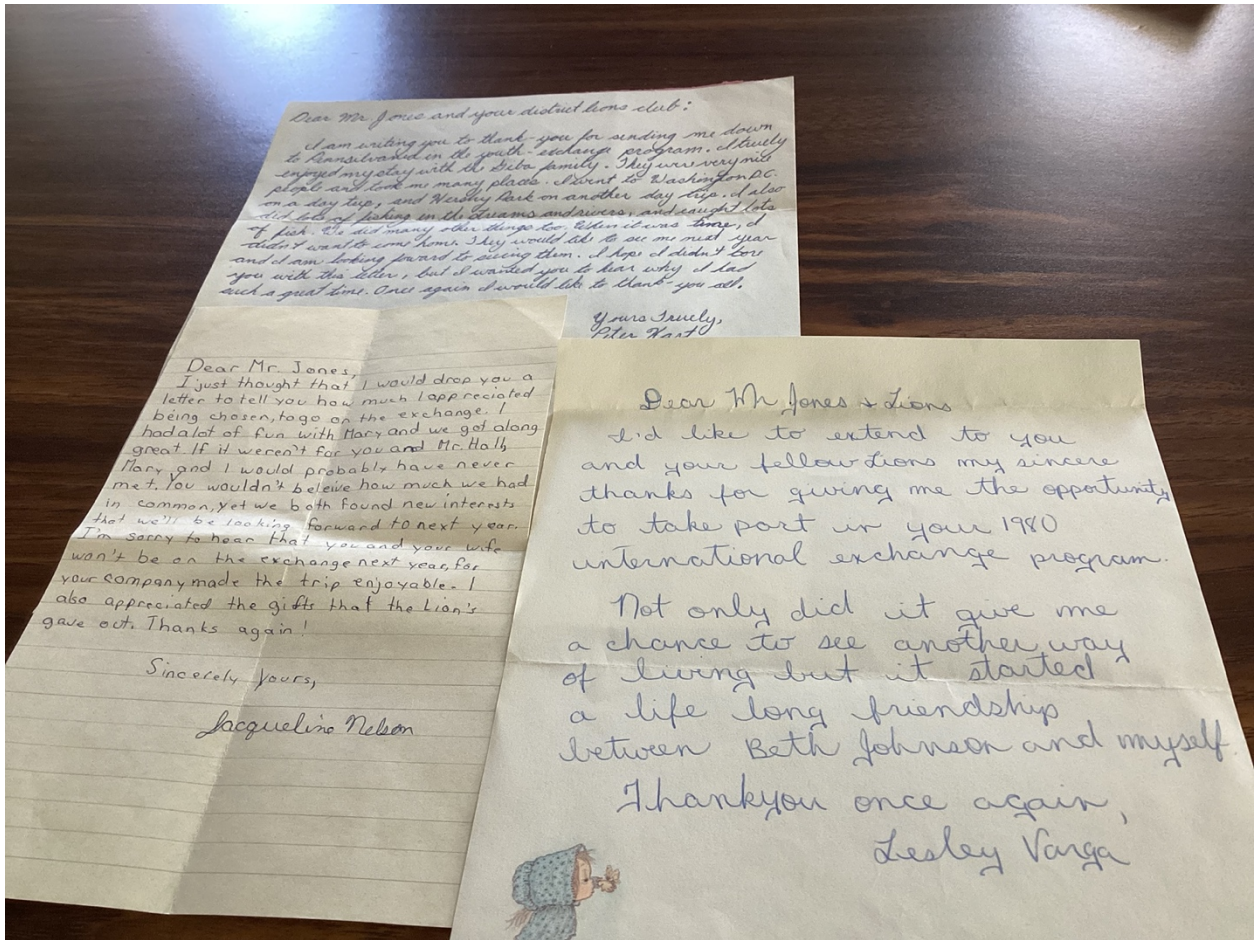 Dear Mr Jones and your district lions club:
I am writing you to thank-you for sending me down
to Pennsilvania in the youth-exchange program. I truely
enjoyed my stay with the family. They were very nice
people and took me many places. I went to Washington D.C.
on a day trip, and Hershy Park on another day trip. I also
did lots of fishing in the streams and rivers, and caught lots
of fish. We did many other things too. When it was time, I
didn't want to come home. They would like to see me next year
and I am looking foward to seeing them. I hope I didn't bore
you with this letter, but I wanted you to hear why I had
such a great time. Once again I would like to thank-you all.
Yours Truely,
Peter Hart
Dear Mr. Jones,
I just thought that I would drop you a
letter to tell you how much I appreciated
being chosen, to go on the exchange. I
had a lot of fun with Mary and we got along
great. If it weren't for you and Mr. Hall,
Mary and I would probably have never
met. You wouldn't beleive how much we had
in common, yet we both found new interests
that we'll be looking forward to next year.
I'm sorry to hear that you and your wife
won't be on the exchange next year, for
your company made the trip enjoyable. I
also appreciated the gifts that the Lion's
gave out. Thanks again!
Sincerely Yours,
Jacqueline Nelson
Dear Mr Jones & Lions
I'd like to extend to you
and your fellow Lions my sincere
thanks for giving me the opportunity
to take part in your 1980
international exchange program.
Not only did it give me
a chance to see another way
of living but it started
a life long friendship
between Beth Johnson and myself.
Thankyou once again,
Lesley Varga